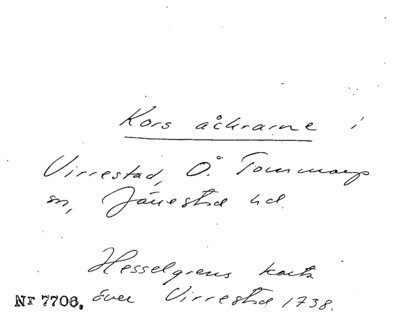 Kors åckrarne i
Virrestad, Ö. Tommarp
sn, Järrestad hd.
Hesselgrens karta
Nr 7706. över Virrestad 1738.